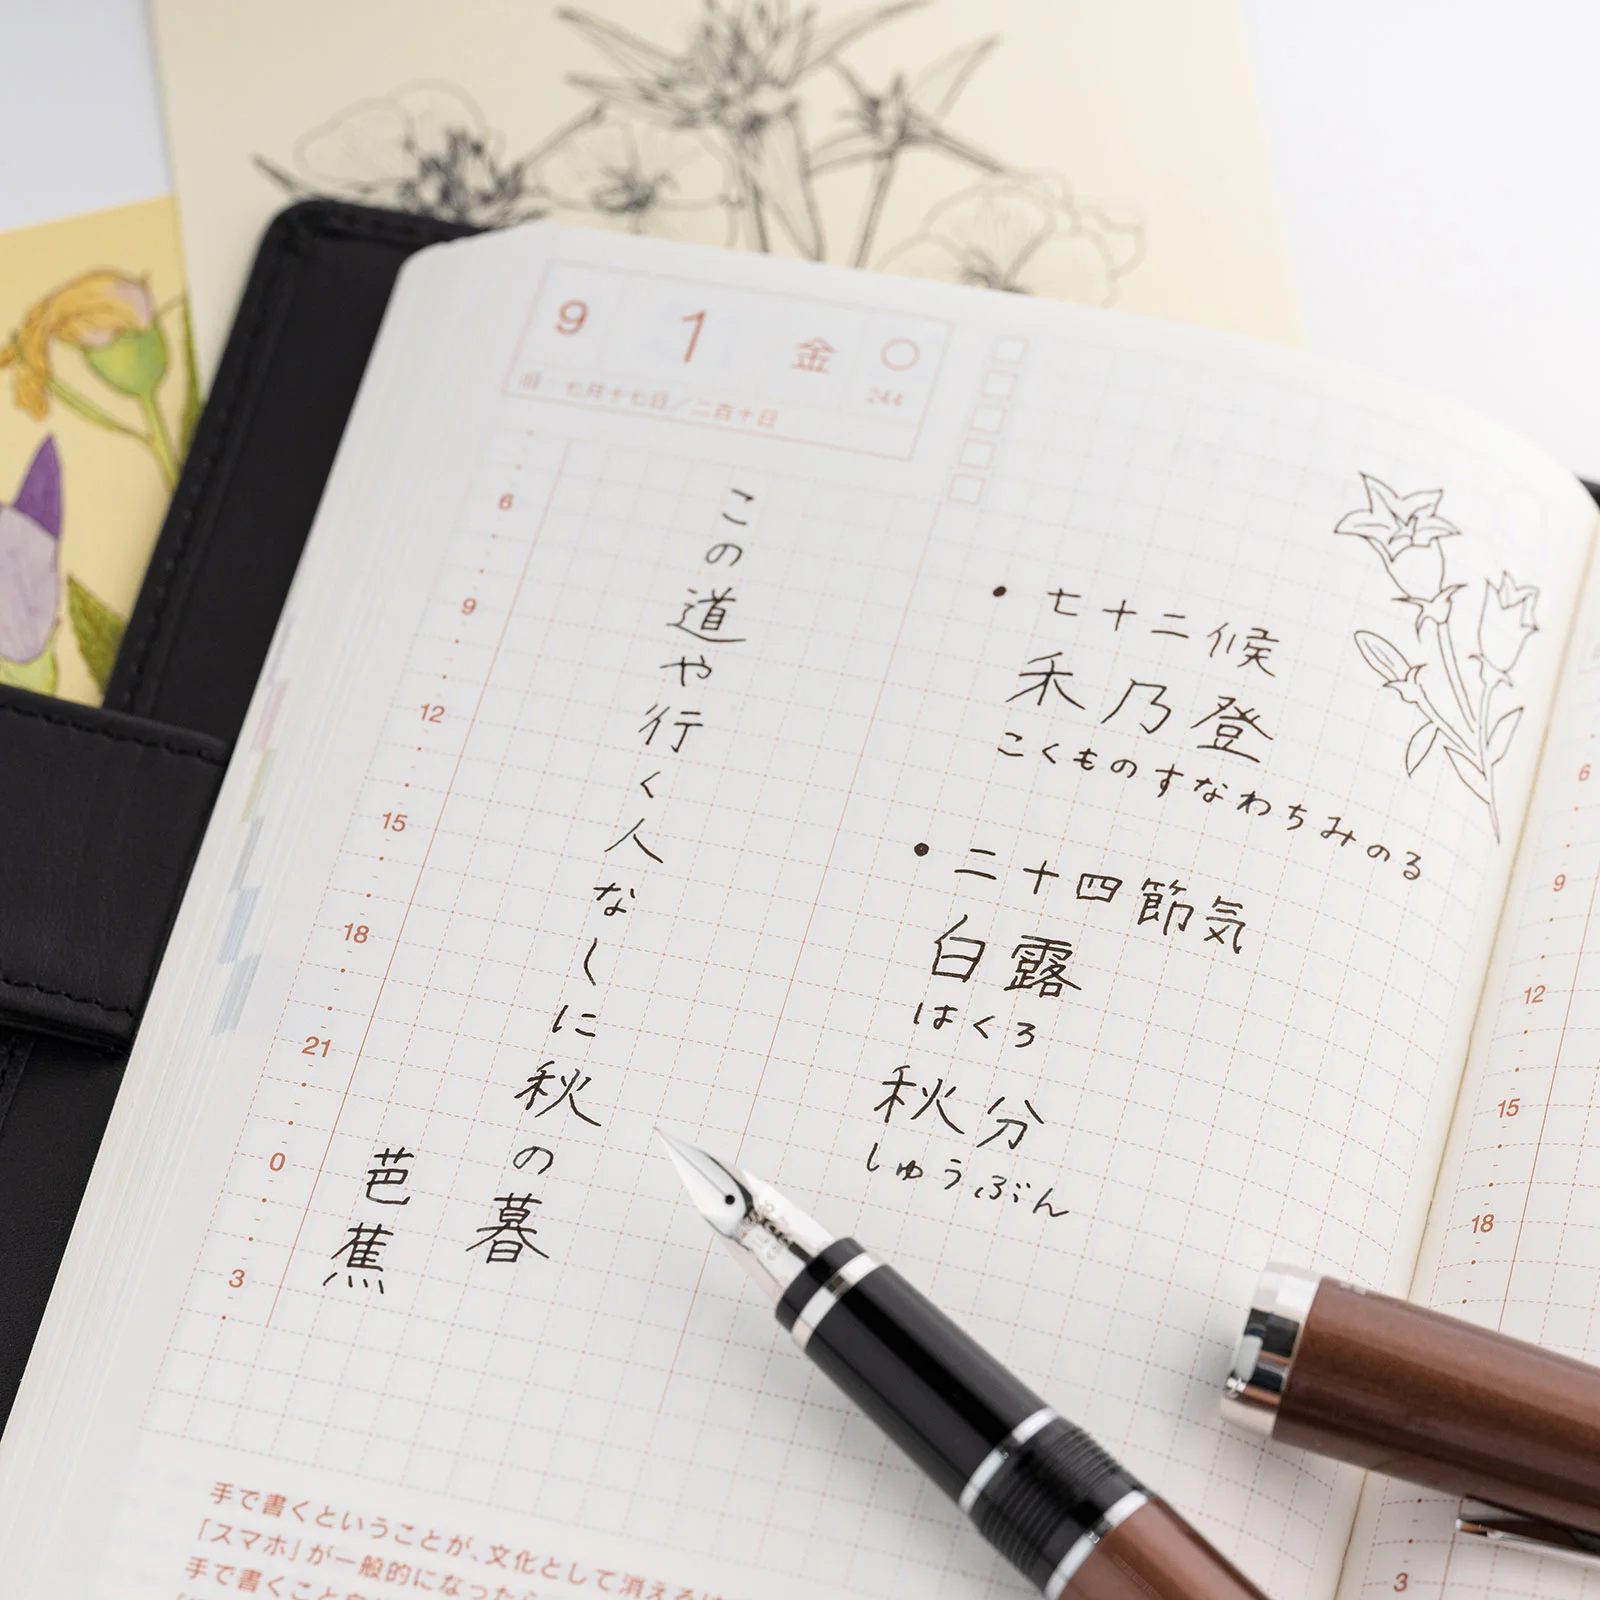 9 1 金 ○
旧 七月十七日／二百十日 244
6
9
12
15
18
21
0
3
この道や行く人なしに秋の暮
芭蕉
・七十二候
禾乃登
こくものすなわちみのる
・二十四節気
白露
はくろ
秋分
しゅうぶん
手で書くということが、文化として消える
「スマホ」が一般的になったら
手で書くこと
6
9
12
15
18
3